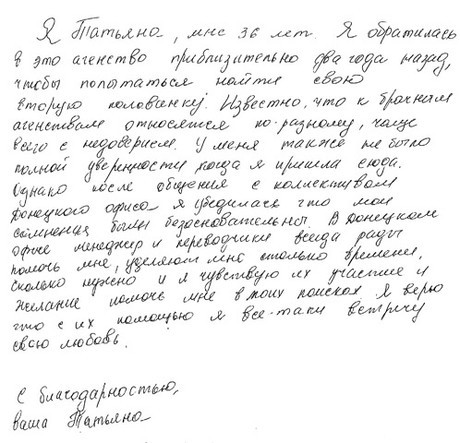 Я Татьяна, мне 36 лет. Я обратилась
в это агенство приблизительно два года назад,
чтобы попытаться найти свою
вторую половинку. Известно, что к брачным
агенствам относятся по-разному, чаще
всего с недоверием. У меня также не было
полной уверенности когда я пришла сюда.
Однако после общения с коллективом
Донецкого офиса я убедилась что мои
сомнения были безосновательны. В Донецком
офисе менеджер и переводчики всегда рады
помочь мне, уделяют мне столько времени,
сколько нужно и я чувствую их участие и
желание помочь мне в моих поисках. Я верю
что с их помощью я все-таки встречу
свою любовь.
С благодарностью,
ваша Татьяна